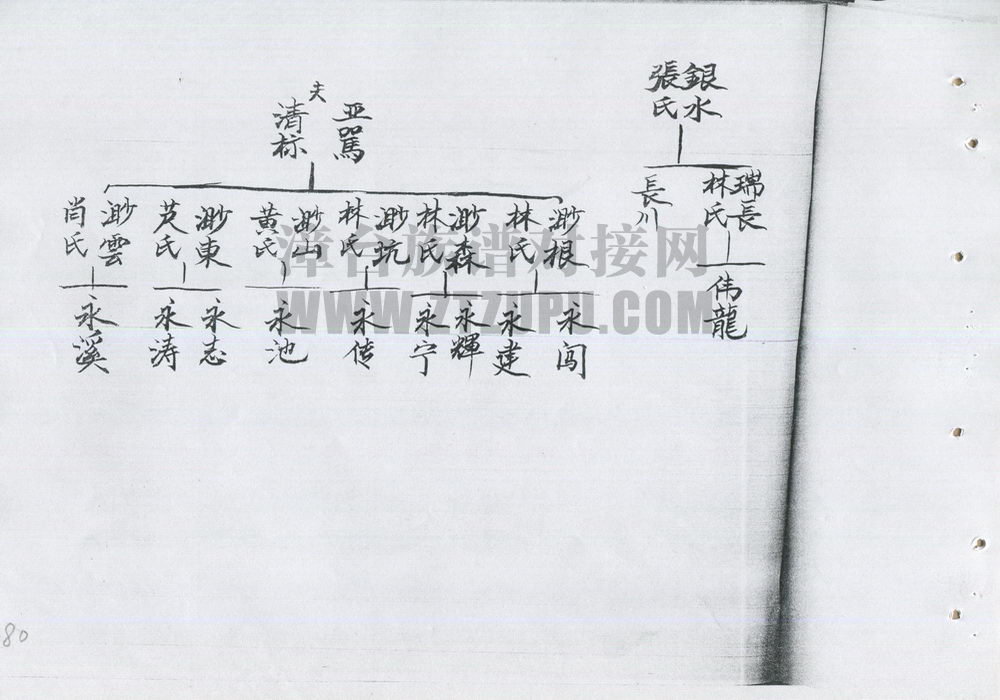 銀水
張氏
瑞長
林氏
長川
伟龍
亚罵
夫
清标
渺根
林氏
渺森
林氏
渺坑
林氏
渺山
黄氏
渺東
渺雲
肖氏
永闯
永建
永輝
永宁
永传
永池
永志
永涛
永溪
漳台族谱对接网
WWW.ZTZUPU.COM
80